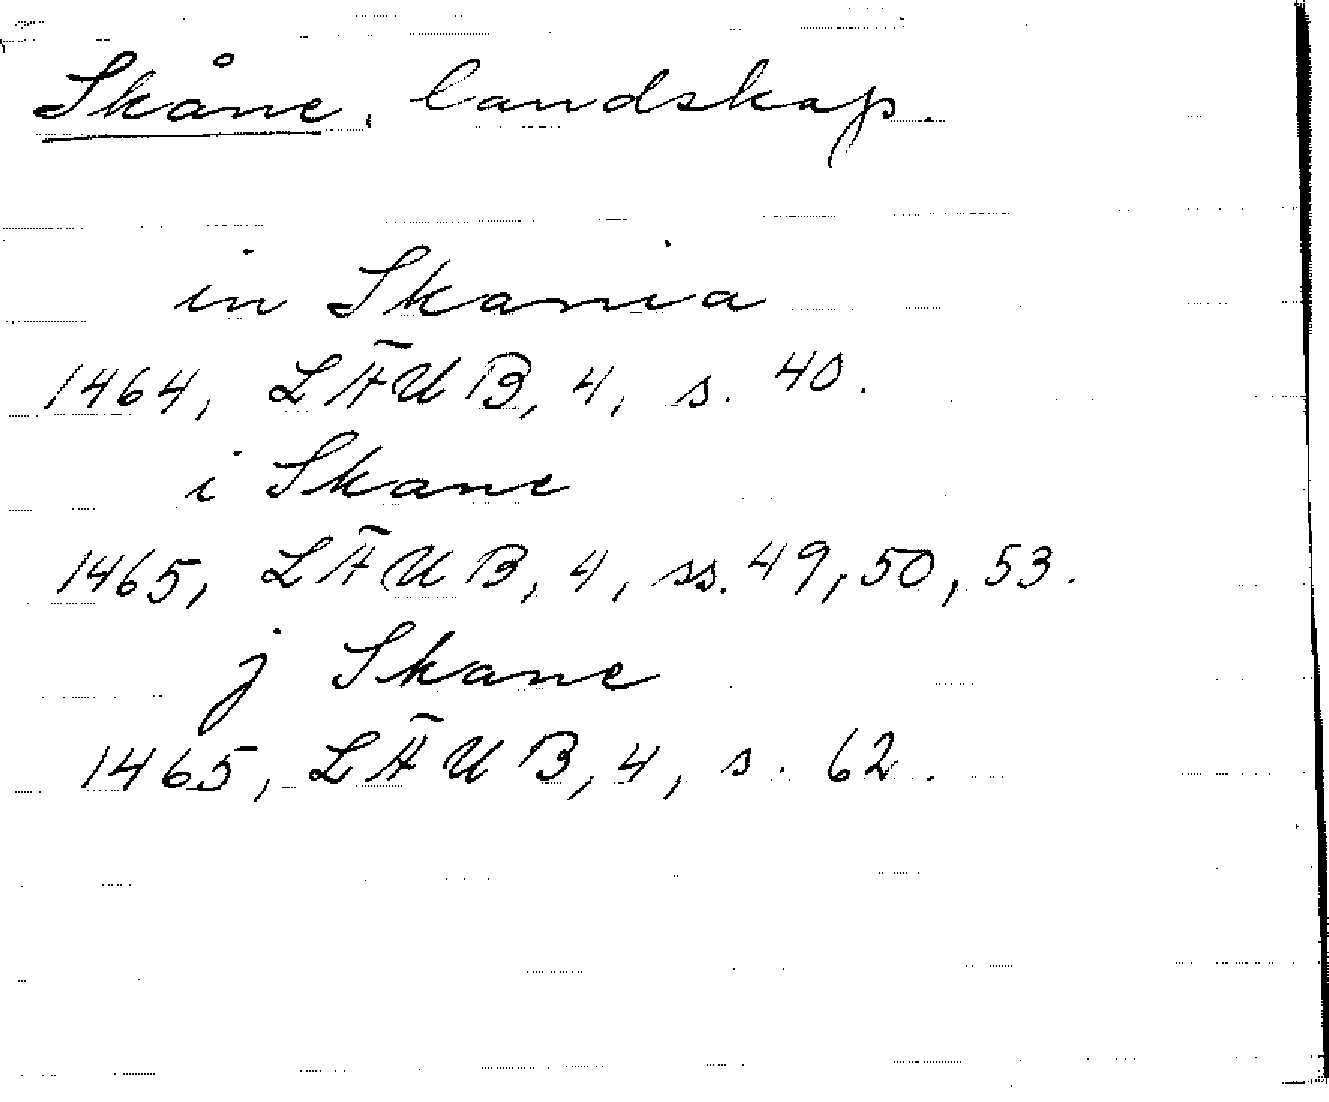 Skåne, landskap.
in Skania
1464, LÄUB, 4, s. 40.
i Skane
1465, LÄUB, 4, ss. 49, 50, 53.
j Skane
1465, LÄUB, 4, s. 62.